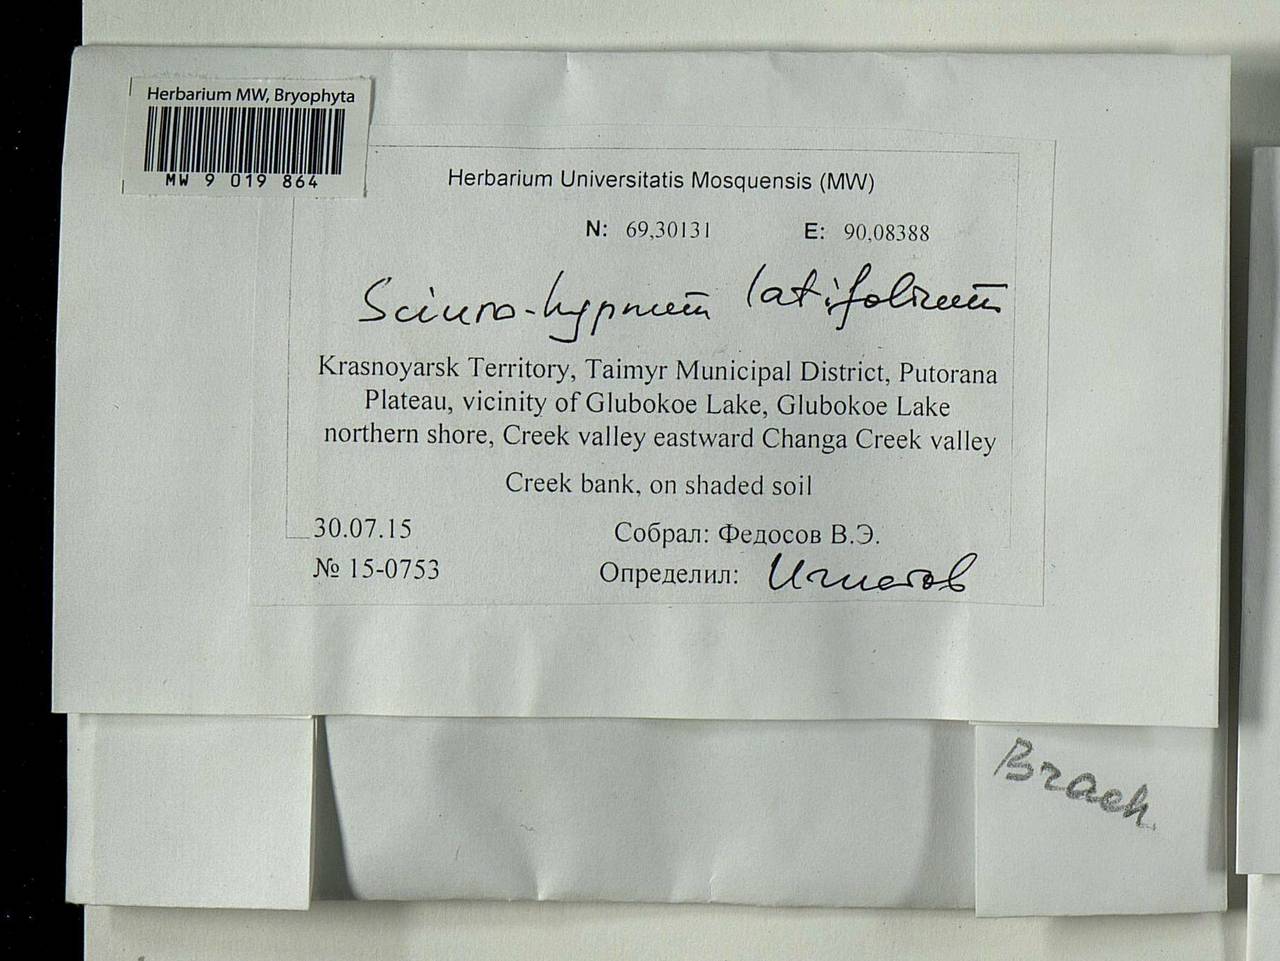 Herbarium MW, Bryophyta
MW 9 019 864
Herbarium Universitatis Mosquensis (MW)
N: 69,30131 E: 90,08388
Sciuro-hypnum latifolium
Krasnoyarsk Territory, Taimyr Municipal District, Putorana
Plateau, vicinity of Glubokoe Lake, Glubokoe Lake
northern shore, Creek valley eastward Changa Creek valley
Creek bank, on shaded soil
30.07.15 Собрал: Федосов В.Э.
№ 15-0753 Определил: Игнатов
Brach.